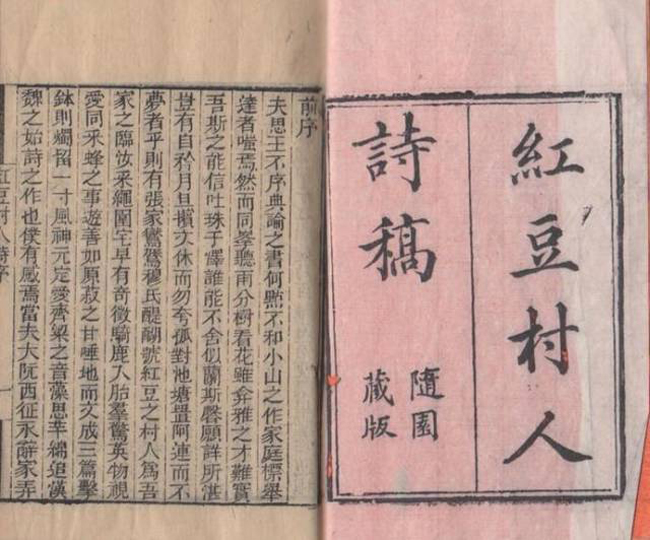 紅豆村人
詩稿
隨園
藏版
前序
夫思王不序典論之書何點不和小山之作家庭標舉
達者嗤焉然而同岑聽雨分樹看花雖弇雅之才難實
吾斯之能信吐珠于澤誰能不舍似蘭斯馨願詳所湛
豈有自矜月旦攘文休而勿夸孤對池塘置阿連而不
夢者乎則有張家鸑鷟穆氏醍醐號紅豆之村人為吾
家之臨汝采繩圍宅早有奇徵騎鹿入胎羣驚英物視
愛同釆蜂之事遊善如原菽之甘唾地而文成三篇擊
鉢則燭留一寸風神元定愛齊梁之音藻思芊綿追漢
魏之始詩之作也僕有感焉當夫大阮西征永辭家弄
紅豆村人詩序